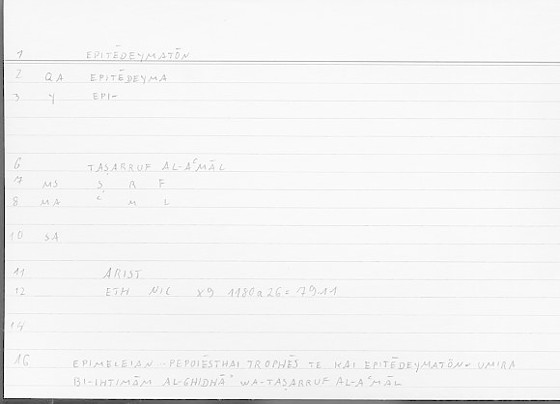 1 EPITĒDEYMATŌN
2 QA EPITĒDEYMA
3 Y EPI-
6 TAṢARRUF AL-AʿMĀL
7 MS Ṣ R F
8 MA ʿ M L
10 SA
11 ARIST
12 ETH NIC X9 1180a26 = 79.11
14
16 EPIMELEIAN PEPOIĒSTHAI TROPHĒS TE KAI EPITĒDEYMATŌN UMIRA
BI-IHTIMĀM AL-GHIDHĀʾ WA-TAṢARRUF AL-AʿMĀL